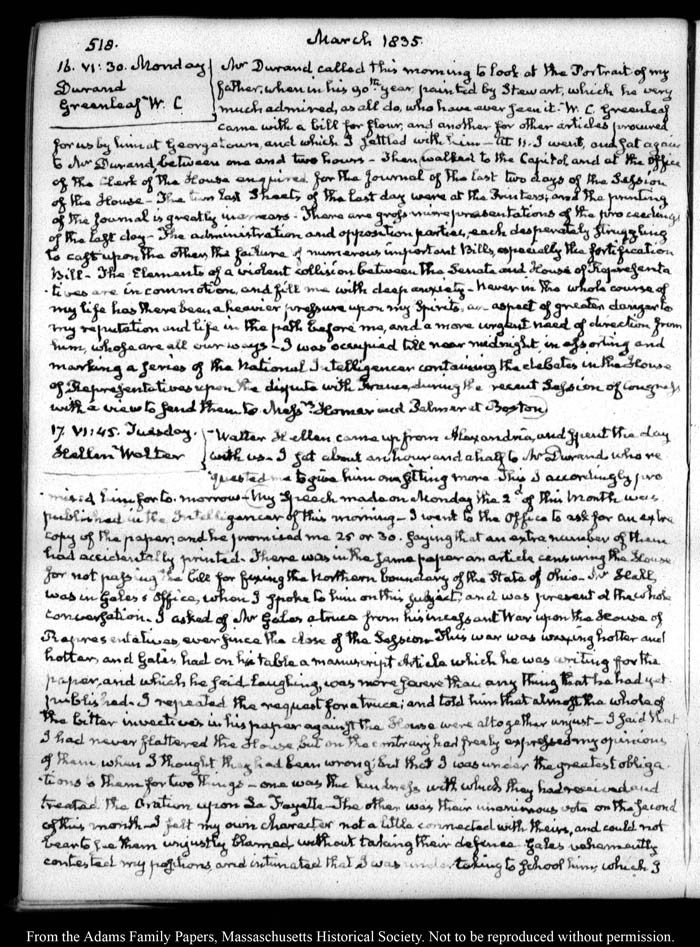 518.
March 1835.
16. VI:30. Monday
Durand
Greenleaf W. C.
Mr Durand called this morning to look at the Portrait of my
father, when in his 90th year, painted by Stewart, which he very
much admired, as all do, who have ever seen it. W. C. Greenleaf
came with a bill for flour, and another for other articles procured
for us by him at Georgetown, and which I settled with him — At 11. I went, and sat again
to Mr Durand between one and two hours — Then walked to the Capitol and at the office
of the Clerk of the House enquired for the Journal of the last two days of the Session
of the House — The two last Sheets of the last day were at the Printers, and the printing
of the Journal is greatly in arrears. There are gross misrepresentations of the proceedings
of the last day — The administration and opposition parties, each desperately struggling
to cast upon the other, the failure of numerous important Bills, especially the fortification
Bill — The Elements of a violent collision between the Senate and House of Representa
tives are in commotion, and fill me with deep anxiety — Never in the whole course of
my life has there been a heavier pressure upon my Spirits, an aspect of greater danger to
my reputation and life in the path before me, and a more urgent need of direction from
him, whose are all our ways — I was occupied till near midnight in assorting and
marking a series of the National Intelligencer containing the debates in the House
of Representatives upon the dispute with France, during the recent Session of Congress
with a view to send them to Messrs Homer and Palmer at Boston
17. VI:45. Tuesday.
Hellen Walter
Walter Hellen came up from Alexandria, and spent the day
with us — I sat about an hour and a half to Mr Durand who re
quested me to give him one sitting more. This I accordingly pro
mised him for to-morrow — My Speech made on Monday the 2d of this Month was
published in the Intelligencer of this morning — I went to the Office to ask for an extra
copy of the paper, and he promised me 25 or 30. saying that an extra number of them
had accidentally printed. There was in the same paper an article censuring the House
for not passing the bill for fixing the Northern boundary of the State of Ohio — Mr
was in Gales's Office, when I spoke to him on this subject, and was present at the whole
conversation. I asked of Mr Gales a truce from his incessant War upon the House of
Representatives, ever since the close of the Session — This war was waxing hotter and
hotter, and Gales had on his table a manuscript Article which he was writing for the
paper, and which he said laughing, was more severe than any thing that he had yet
published. I repeated the request for a truce; and told him that almost the whole of
the bitter invectives in his paper against the House were altogether unjust — I said that
I had never flattered the House, but on the contrary had freely expressed my opinions
of them when I thought they had been wrong; but that I was under the greatest obliga
tions to them for two things — one was the kindness with which they had received and
treated the Oration upon La Fayette — The other was their unanimous vote on the second
of this month — I felt my own character not a little connected with theirs, and could not
bear to see them unjustly blamed without taking their defence. Gales vehemently
contested my positions, and intimated that I was undertaking to school him, which I
From the Adams Family Papers, Massachusetts Historical Society. Not to be reproduced without permission.